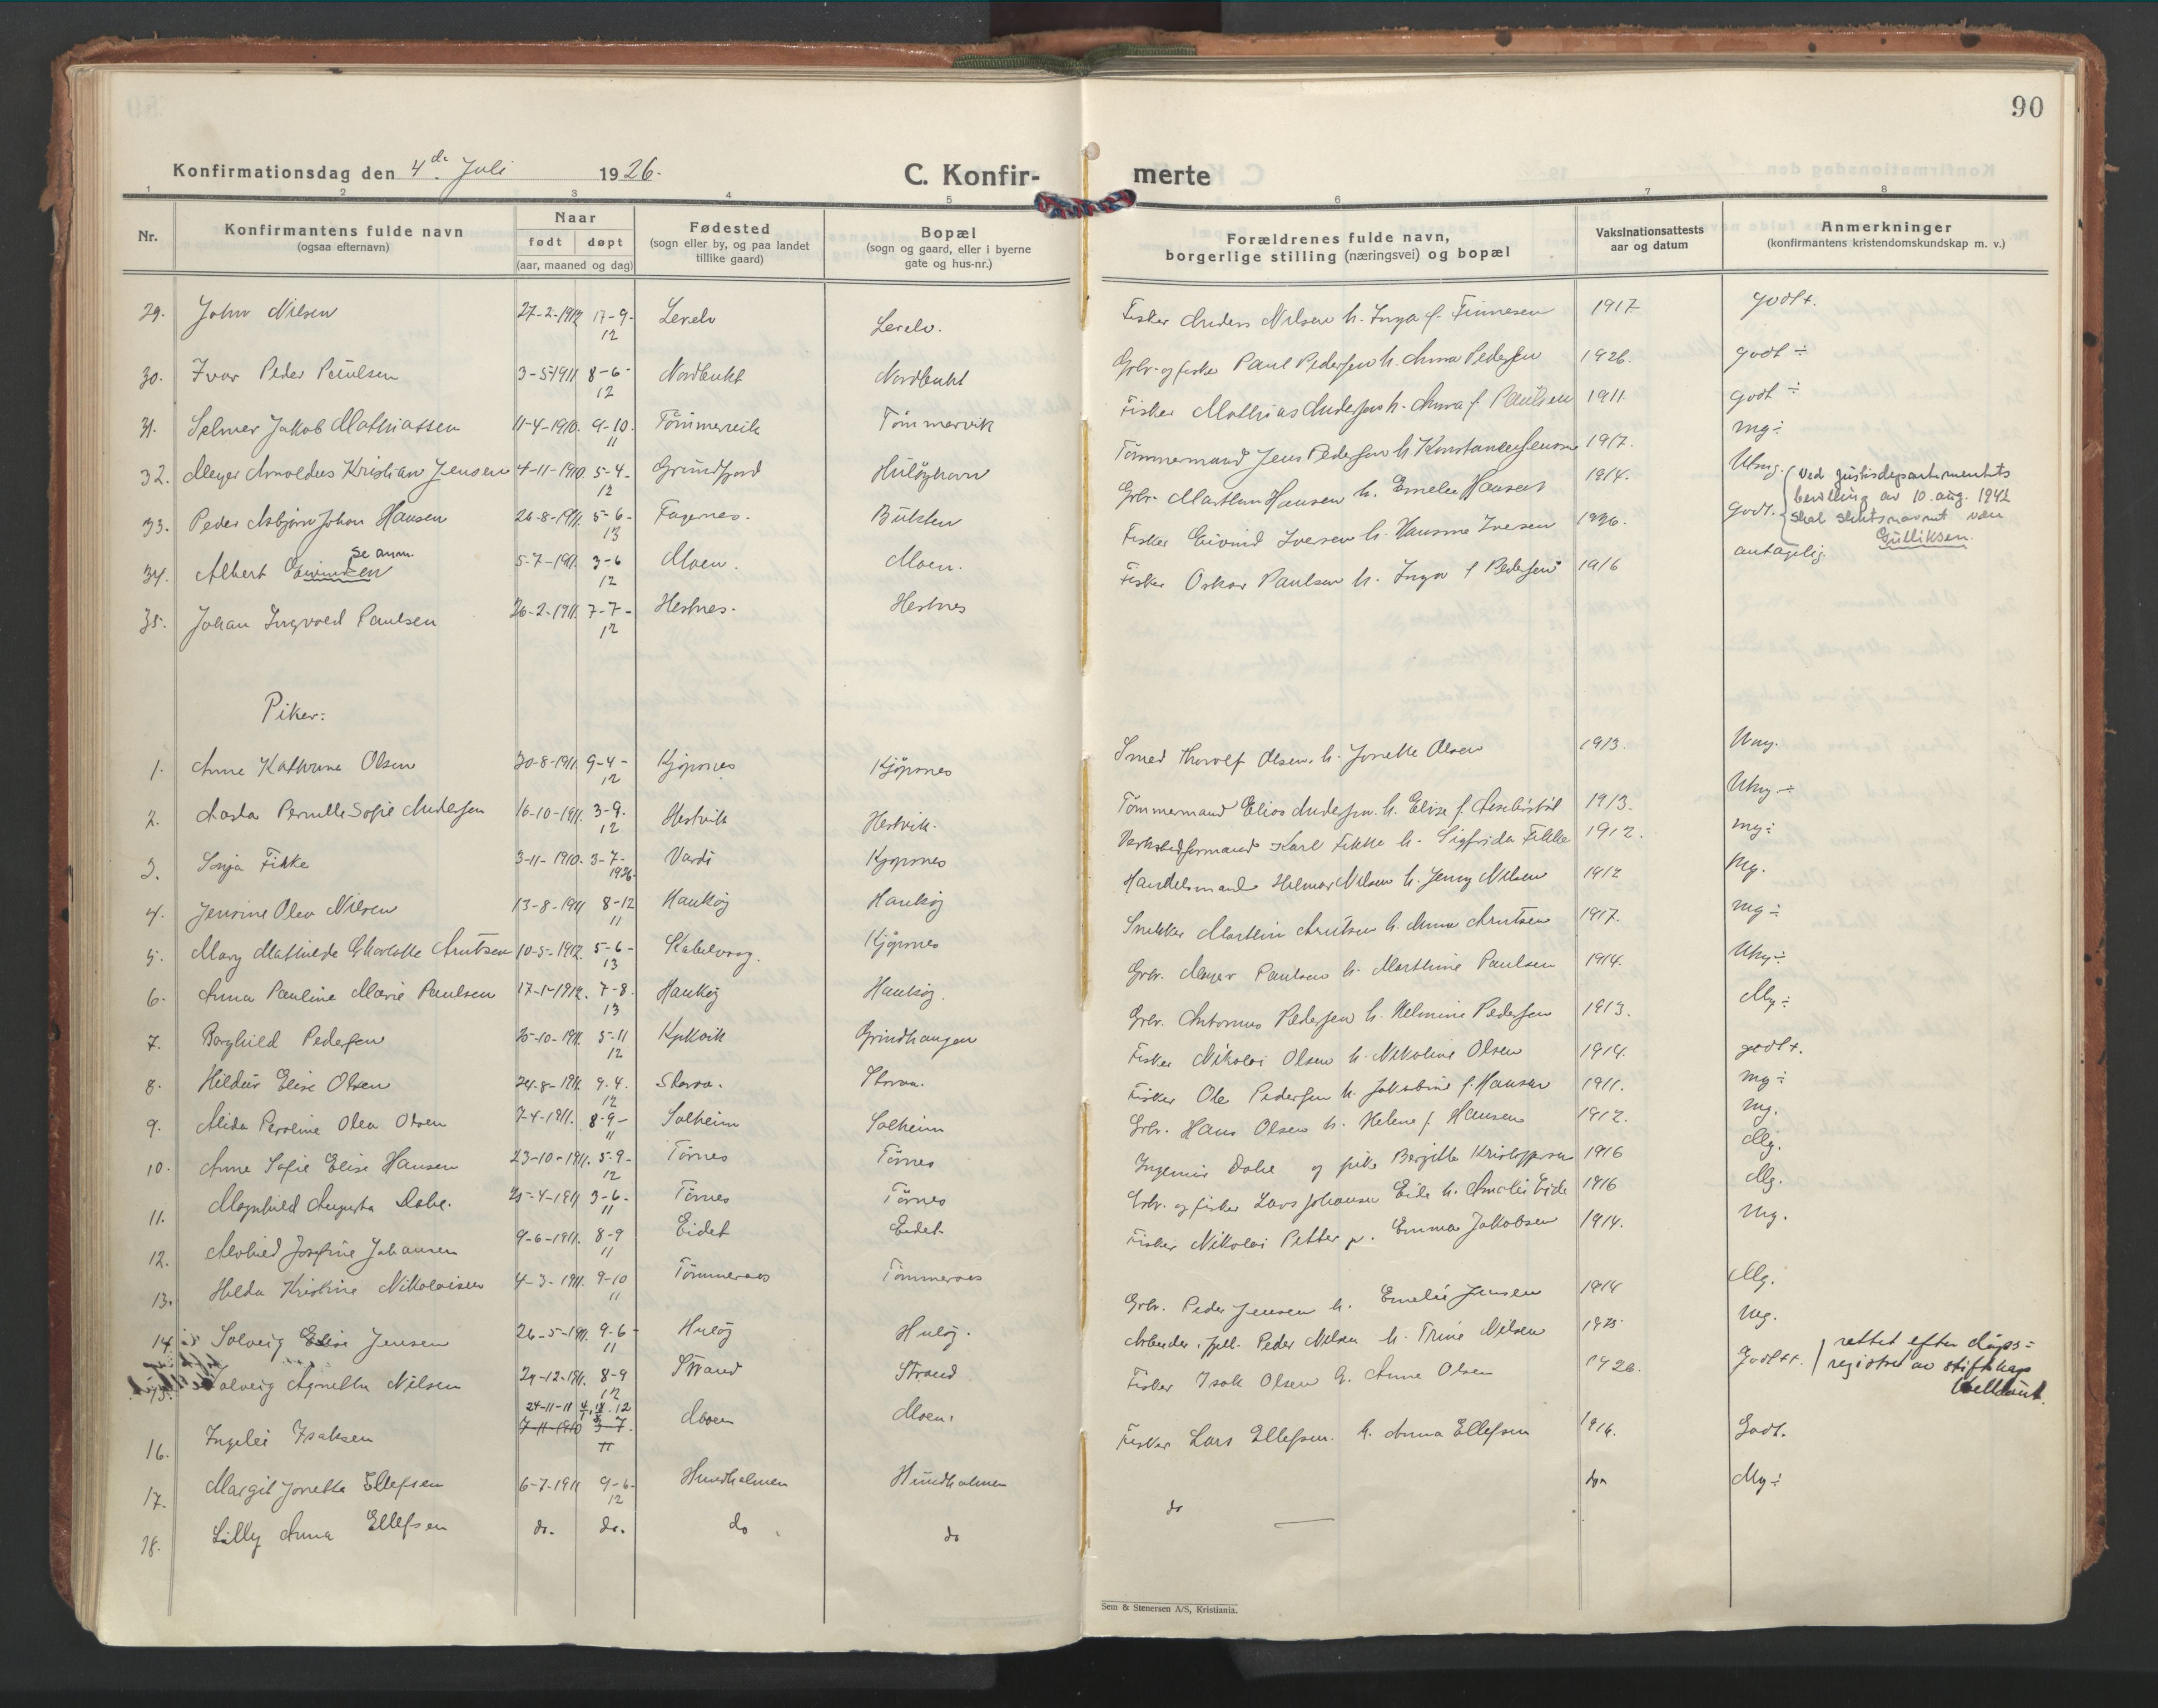 90
Konfirmationsdag den 4de Juli 1926.
C. Konfir- merte
1 2 3 4 5 6 7 8
Nr. Konfirmantens fulde navn (ogsaa efternavn) Naar født døpt (aar, maaned og dag) Fødested (sogn eller by, og paa landet tillike gaard) Bopæl (sogn og gaard, eller i byerne gate og hus-nr.) Forældrenes fulde navn, borgerlige stilling (næringsvei) og bopæl Vaksinationsattests aar og datum Anmerkninger (konfirmantens kristendomskundskap m. v.)
29. John Nilsen 27-2-1912 17-9-12 Lerelv Lerelv. Fisker Anders Nilsen h. Inga f. Finnesen 1917 godt+.
30. Ivar Peder Paulsen 3-5-1911 8-6-12 Nordbukt Nordbukt Grbr. og fisker Paul Pedersen h. Anna Pedersen 1926. godt÷
31. Selmer Jakob Mathiassen 11-4-1910. 9-10-11 Tömmervik Tömmervik Fisker Mathias Andersen h. Anna f. Paulsen 1911 godt÷
32. Meyer Arnoldus Kristian Jensen 4-11-1910. 5-4-12 Grundfjord Hulöyhavn Tömmermand Jens Pedersen h. Konstanse Jensen 1917. mg÷
33. Peder Asbjörn Johan Hansen 26-8-1911. 5-6-13 Fagernes. Bukten Grbr. Marthin Hansen h. Emelie Hansen 1914. Ukmg.
34. Albert Eivindsen se anm. 5-7-1911. 3-6-12 Moen. Moen. Fisker Eivind Iversen h. Hansine Iversen 1926. godt. ved Justisdepartementets bevilling av 10. aug. 1942 skal slektsnavnet være Gulliksen.
35. Johan Ingvald Paulsen 26-2-1911. 7-7-12 Hestnes. Hestnes Fisker Oskar Paulsen h. Inga f Pedersen 1916 antagelig.
Piker:
1. Anne Kathrine Olsen 30-8-1911. 9-4-12 Kjöpsnes Kjöpsnes Smed Thorolf Olsen. h. Jonette Olsen 1913. Ukmg.
2. Aasta Pernille Sofie Andersen 16-10-1911. 3-9-12 Hestvik Hestvik. Tömmermand Elias Andersen h. Elise f. 1913. Ukmg÷
3. Sonja Fikke 3-11-1910. 3-7-1926. Vardö Kjöpsnes Verkstedformand Karl Fikke h. Sigfrida Fikke 1912. mg÷
4. Jensine Olea Nilsen 13-8-1911 8-12 11 Hauköy Hauköy Handelsmand Hilmar Nilsen h. Jenny Nilsen 1912 Mg.
5. Mary Mathilde Charlotte Arntsen 10-5-1912. 5-6-13 Kabelvaag. Kjöpsnes Snekker Marthin Arntsen h. Anna Arntsen 1917. mg÷
6. Anna Pauline Marie Paulsen 17-1-1912. 7-8-13 Hauköy Hauköy. Grbr. Meyer Paulsen h. Marthine Paulsen 1914. Ukmg÷
7. Borghild Pedersen 25-10-1911. 5-11 12 Kjelvik Grindhaugen Grbr. Antonius Pedersen h. Helmine Pedersen 1913. Mg÷
8. Hildur Elise Olsen 24-8-1911. 9.4.12 Storvà. Storvà. Fisker Nikolai Olsen h. Nikoline Olsen 1914. godt+.
9. Alida Peroline Olea Olsen 7-4-1911. 8-9-11 Solheim Solheim Fisker Ole Pedersen h. Jakobine f. Hansen 1911. mg÷
10. Anne Sofie Elise Hansen 23-10-1911. 5-9-12 Törnes Törnes Grbr. Hans Olsen h. Helene f. Hansen 1912. mg.
11. Magnhild Augusta Dahl. 25-4-1911 3-6-11 Törnes Törnes Ingeniör Dahl og pike Bergitte Kristoffersen 1916 Mg.
12. Alvhild Josefine Johansen 9-6-1911. 8-9 11 Eidet Eidet Grbr. og fisker Lars Johansen Eide h. Amalie Eide 1916 Mg.
13. Hilda Kristine Nikolaisen 4-3-1911. 9-10 11 Tömmernes Tömmernes Fisker Nikolai Petter p. Emma Jakobsen 1914. Mg.
14. Solveig Elise Jensen 26-5-1911. 9-6-11 Hulöy Hulöy. Grbr. Peder Jensen h. Emelie Jensen 1914 Mg.
15. Solveig Agnethe Nilsen 29-12-1911. 8-9 12 Strand Strand Arbeider i fjell. Peder Nilsen h. Trine Nilsen 1925 Mg.
16. Ingelei Isaksen 24-11-11 7-11-1910 3-7. 11 Moen Moen. Fisker Isak Olsen h. Anne Olsen 1926. Godt+. rettet efter dåpsregistret av stiftskap
17. Margit Jonette Ellefsen 6-7-1911 9-6-12 Hundholmen Hundholmen Fisker Lars Ellefsen. h. Anna Ellefsen 1916. Godt.
18. Lilly Anna Ellefsen do. do. do do do do Mg÷
Sem & Stenersen A/S, Kristiania.